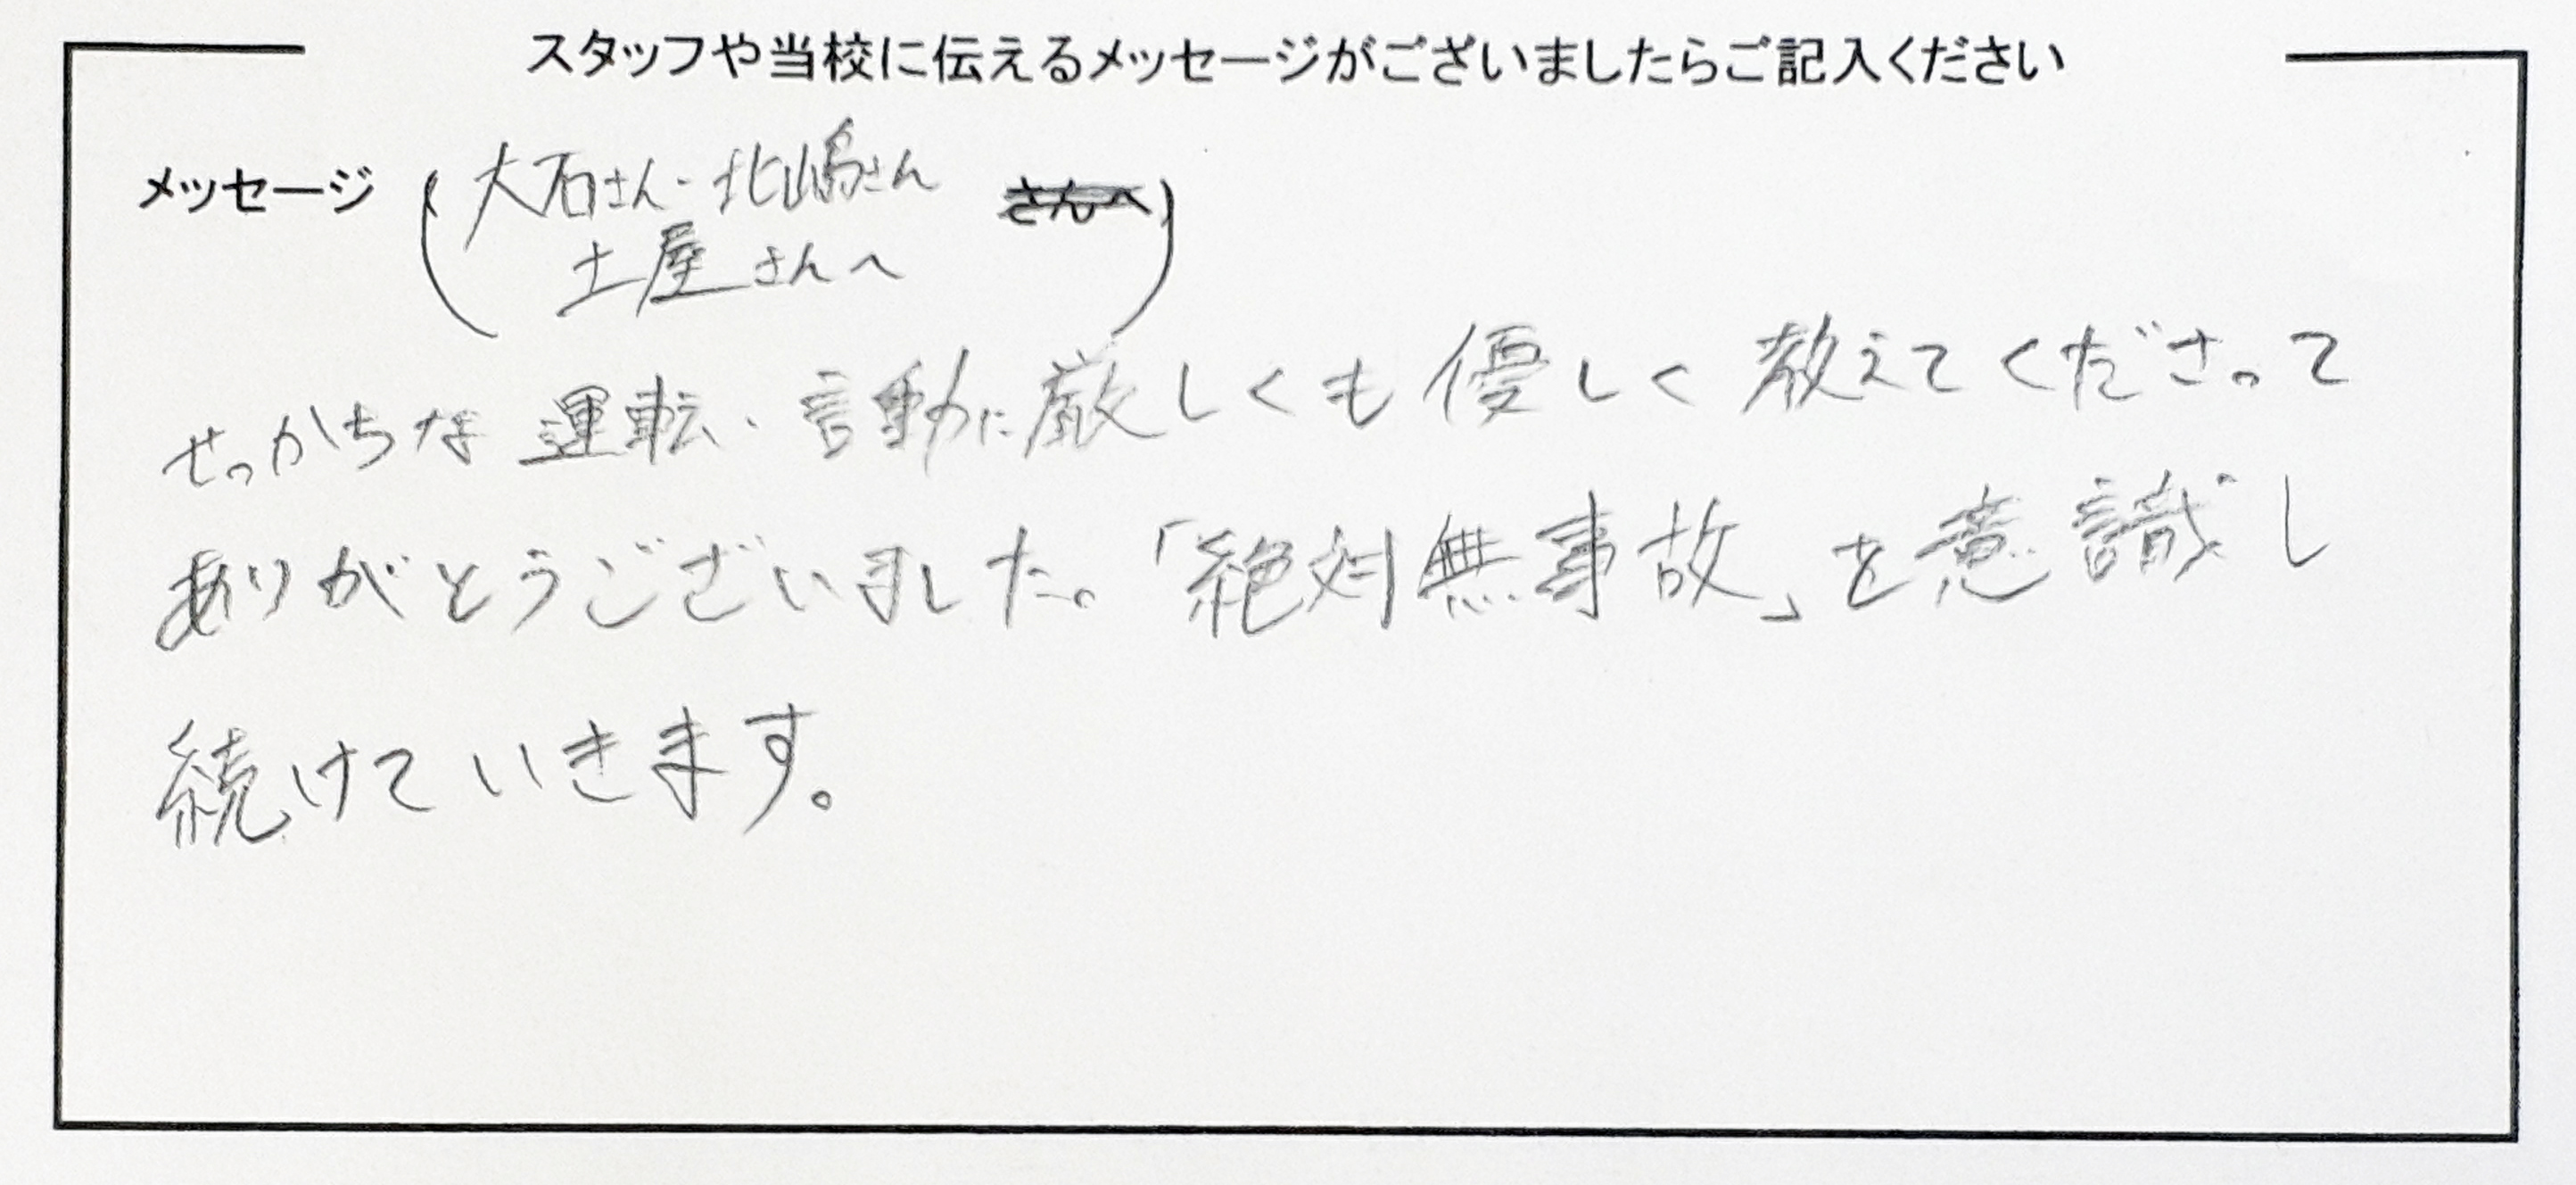 スタッフや当校に伝えるメッセージがございましたらご記入ください
メッセージ (大石さん・北嶋さん さんへ)
土屋さんへ
せっかちな運転・言動に厳しくも優しく教えてくださって
ありがとうございました。「絶対無事故」を意識し
続けていきます。